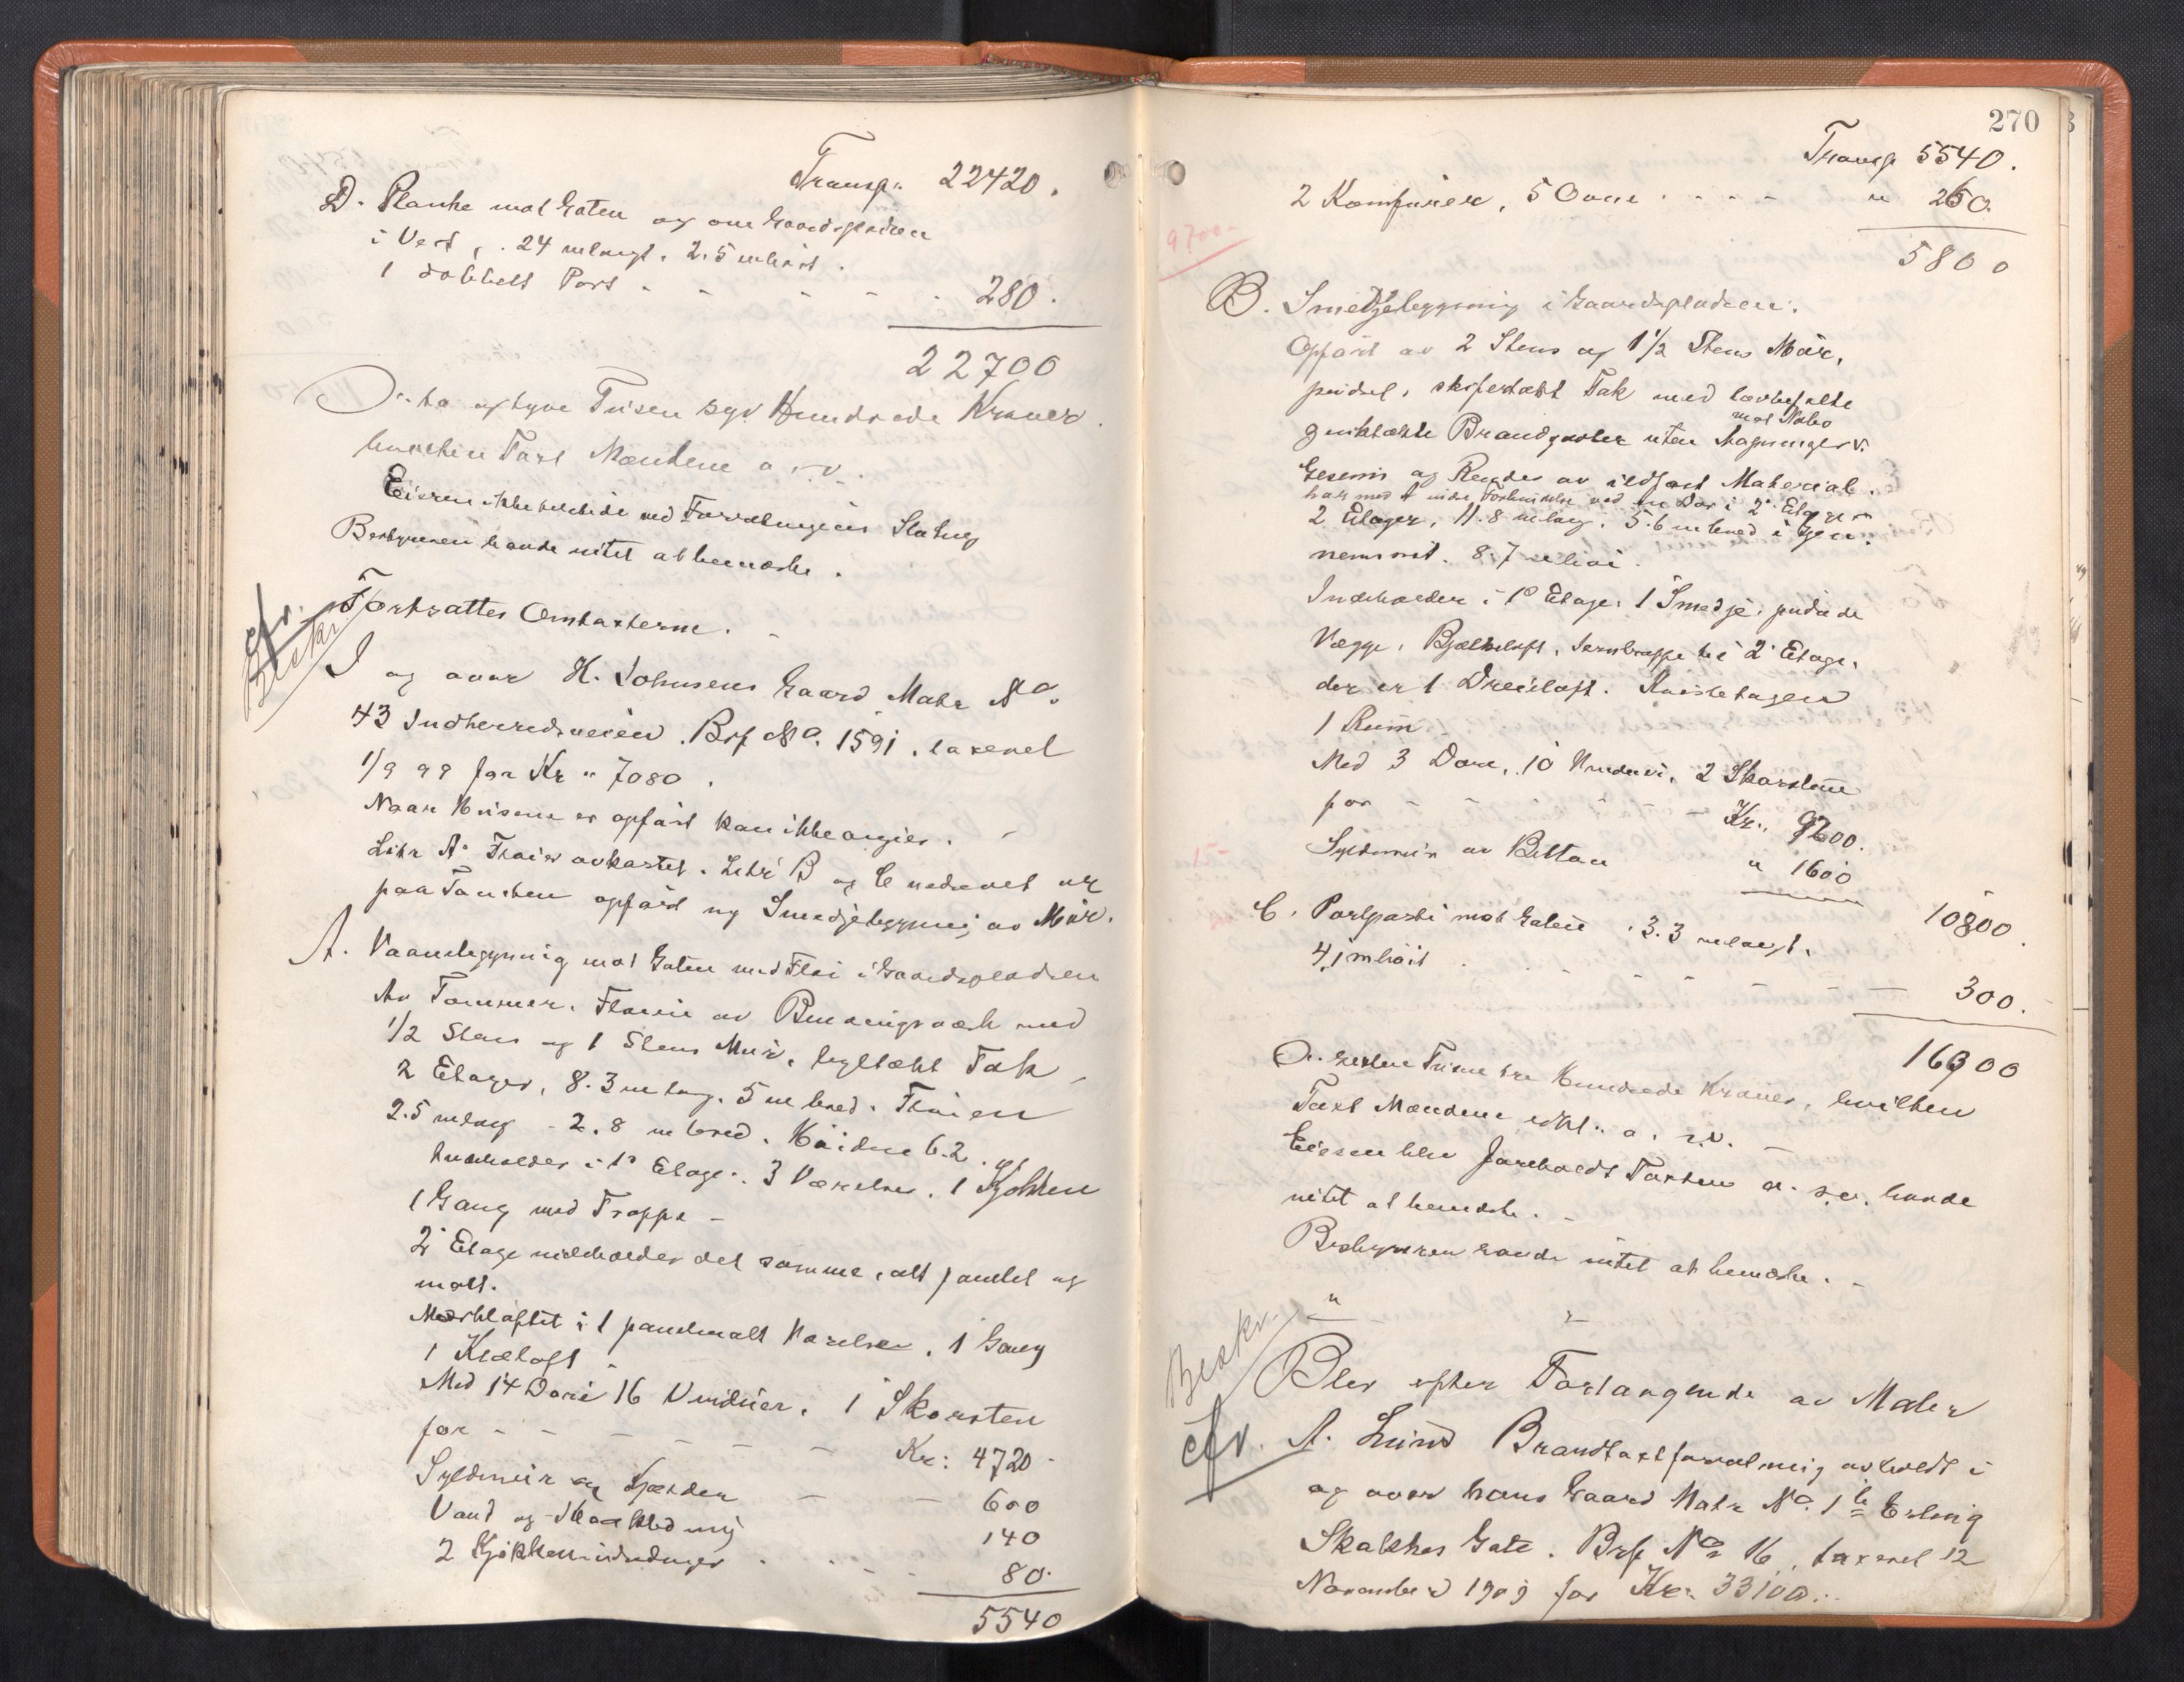 Transp. 22420.
D. Planke mot Gaten og om Gaardspladsen
i Vest, 24 m langt. 2.5 m høit.
1 dobbelt Port - - - - - 280.
22700
to og tyve Tusen syv Hundrede Kroner
hvorhen Taxt Mændene o.s.v.
Eieren ikke tilstede ved Forretningens Slutng
Bestyreren havde intet at bemærke.
cfr.
Beskr.
Fortsattes Omtaxterne.
I og over H. Johnsens Gaard Matr No.
43 Indherredsveien. Brf No. 1591. taxeret
1/9 99 for Kr " 7080.
Naar Husene er opført kan ikke angies.
Litr A. Fløien avkastet. Litr B og C nedrevet og
paa Tomten opført ny Smedjebygning av Mur.
A. Vaanebygning mot Gaten med Fløi i Gaardspladsen
Av Tømmer. Fløien av Binningsværk med
1/2 Stens og 1 Stens Mur, tegltækt Tak
2 Etager, 8.3 m lang. 5 m bred. Fløien
2.5 m lang - 2.8 m bred. Høiden 6.2.
Indeholder i 1ste Etage. 3 Værelser. 1 Kjøkken
1 Gang med Trappe -
2. Etage indeholder det samme, alt panelet og
malt.
Mørkloftet i 1 panelmalt Værelse. 1 Gang
1 Klæloft
Med 14 Døre 16 Vinduer. 1 Skorsten
for - - - - - - Kr: 4720 -
Syldmur og Kjælder - - 600
Vand og Kloakledning 140
2 Kjøkkenindredninger - - - 80.
5540
270
Transp 5540.
2 Komfurer, 5 Ovne - - - - " 260.
5800
9700-
B. Smedjebygning i Gaardspladsen.
Opført av 2 Stens og 1 1/2 Stens Mur,
pudset, skifertækt Tak med lovbefalte
mot Nabo
Brandgavler uten Aapninger.
Gesims og Render av ildfast Material.
har med A indre Forbindelse ved en Dør i 2. Etage
2 Etager, 11.8 m lang. 5.6 m bred i Gjen-
nemsnit. 8.7 m høi.
Indeholder i 1e Etage: 1 Smedje. pudsede
Vægge, Bjælkeloft, Jerntrappe til 2. Etage.
der er 1 Dreieloft. Kvistetagen
1 Rum.
Med 3 Døre, 10 Vinduer. 2 Skorstene
for - - - - - - - Kr. 9200.
15-
Syldmur av Betton " 1600
10800.
C. Portparti mot Gaten. 3.3 m langt.
4.1 m høit - - - - - - 300.
16900
seksten Tusen Hundrede Kroner, hvilken
Taxt Mændene erkl. o.s.v. -
Eieren blev foreholdt Taxten o.s.v. havde
intet at bemærke. -
Bestyreren havde intet at bemærke. -
" "
Beskr.
cfr.
Blev efter Forlangende av Maler
A. Lund Brandtaxtforretning avholdt i
og over hans Gaard Matr No. 1 b Erling
Skakkes Gate. Brf No 16, taxeret 12
November 1909 for Kr. 33100..